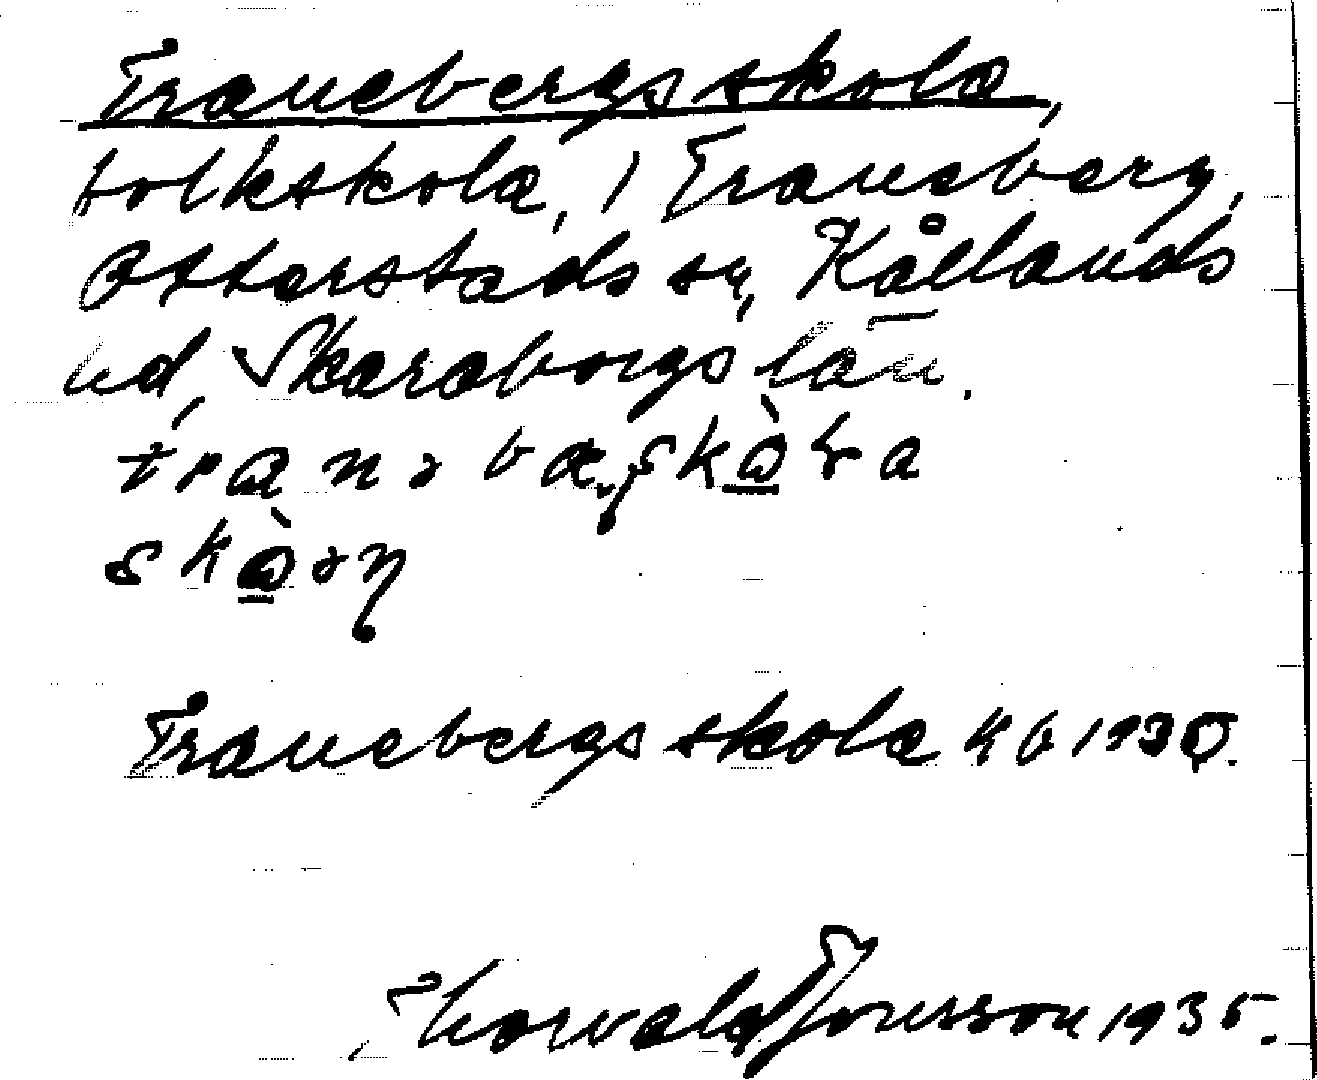 Tranebergs skola,
folkskola, i Traneberg,
Otterstads sn, Kållands
hd, Skaraborgs län.
Tranebergs skola kb 1930.
Thorvald Jonsson 1935.